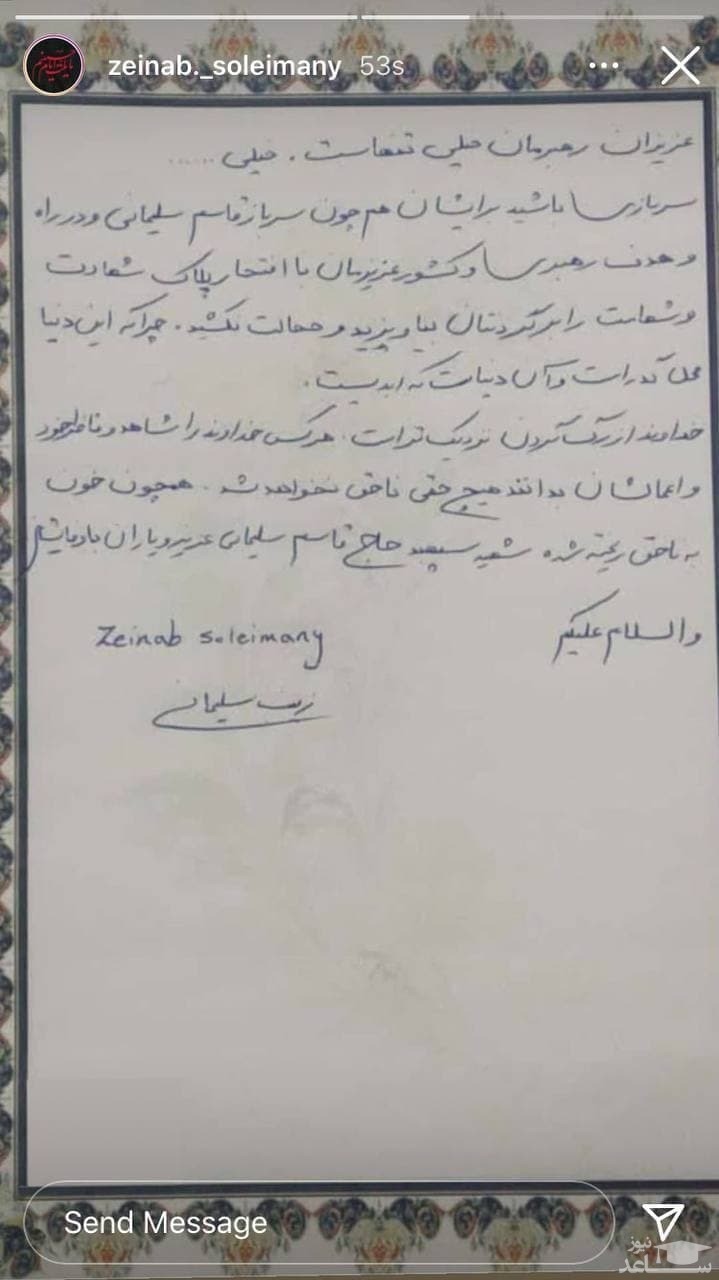 zeinab._soleimany 53s
عزیزان رهبرمان خیلی تنهاست . خیلی ......
سربازی باشید برایشان هم چون سرباز قاسم سلیمانی و در راه
و هدف رهبری و کشور عزیزمان با افتخار پلاک شهادت
و شهامت را بر گردنتان بیاویزید و خجالت نکشید . چرا که این دنیا
محل گذر است و آن دنیاست که ابدیست .
خداوند از رگ گردن نزدیک تر است . هر کس خداوند را شاهد و ناظر خود
و اعمالشان بدانند هیچ حقی ناحق نخواهد شد . همچون خون
به ناحق ریخته شده شهید سپهبد حاج قاسم سلیمانی عزیز و یاران باوفایشان
والسلام علیکم
Zeinab soleimany
زینب سلیمانی
Send Message
نیوز
ساعد